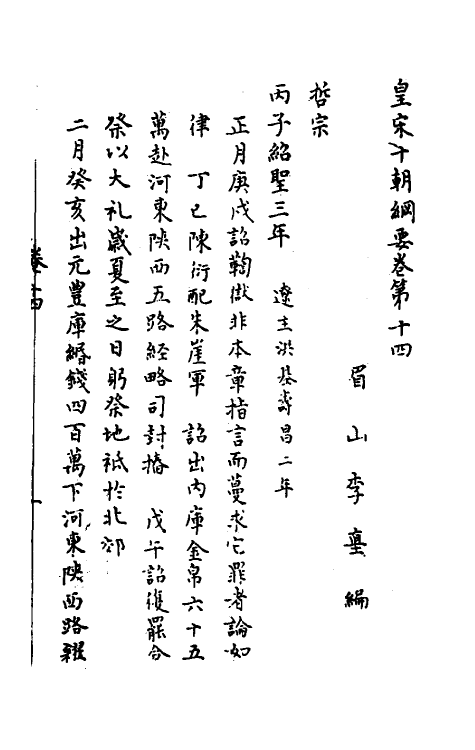 皇宋十朝綱要卷第十四
眉山李𡌴編
哲宗
丙子紹聖三年 遼主洪基壽昌二年
正月庚戌詔鞫獄非本章指言而蔓求它罪者論如
律 丁巳陳衍配朱崖軍 詔出內庫金帛六十五
萬赴河東陝西五路経略司封樁 戊午詔復罷合
祭以大礼歲夏至之日躬祭地祇於北郊
二月癸亥出元豐庫緡錢四百萬下河東陝西路糴
卷十四 一